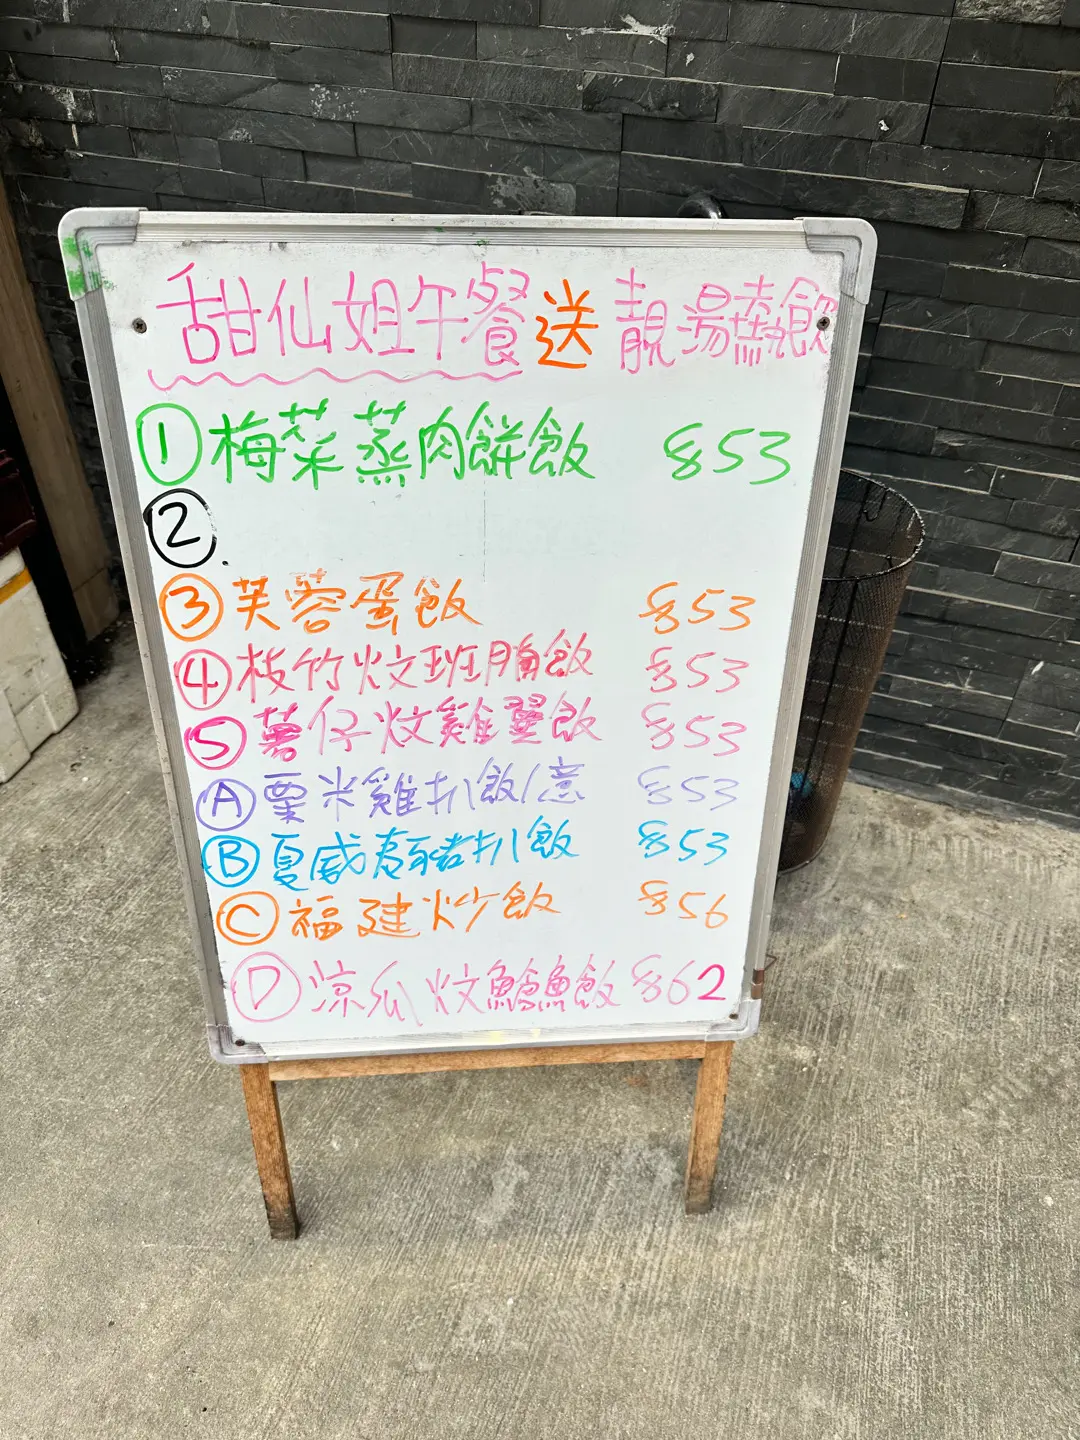 甜仙姐午餐送靚湯熱飲
① 梅菜蒸肉餅飯 $53
②.
③ 芙蓉蛋飯 $53
④ 枝竹炆班腩飯 $53
⑤ 薯仔炆雞翼飯 $53
Ⓐ 粟米雞扒飯/意 $53
Ⓑ 夏威夷豬扒飯 $53
Ⓒ 福建炒飯 $56
Ⓓ 涼瓜炆鱠魚飯 $62